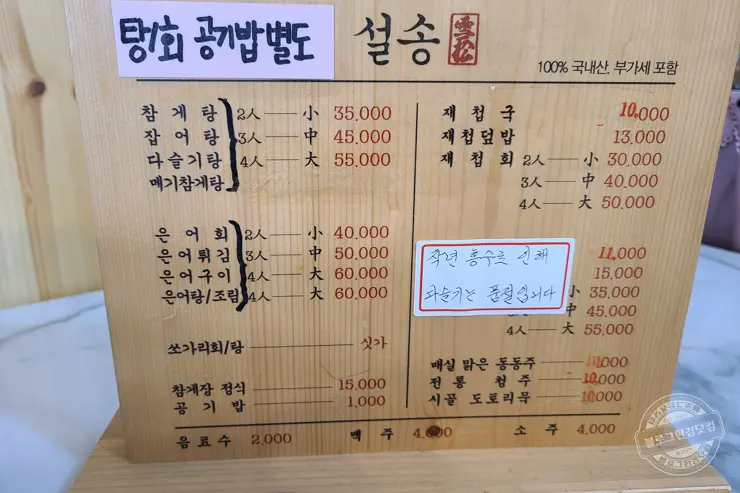 탕/회 공기밥 별도
설송 雪松
100% 국내산. 부가세 포함
참게탕 2人 小 35.000
잡어탕 3人 中 45.000
다슬기탕 4人 大 55.000
메기참게탕
은어회 2人 小 40.000
은어튀김 3人 中 50.000
은어구이 4人 大 60.000
은어탕/조림 4人 大 60.000
쏘가리회/탕 싯가
참게장 정식 15.000
공기밥 1.000
재첩국 10.000
재첩덮밥 13.000
재첩회 2人 小 30.000
3人 中 40.000
4人 大 50.000
작년 홍수로 인해
다슬기는 품절입니다
11.000
15.000
小 35.000
中 45.000
4人 大 55.000
매실 맑은 동동주 10.000
전통 청주 10.000
시골 도토리묵 10.000
음료수 2.000 맥주 4.000 소주 4.000
블로그현경닷컴